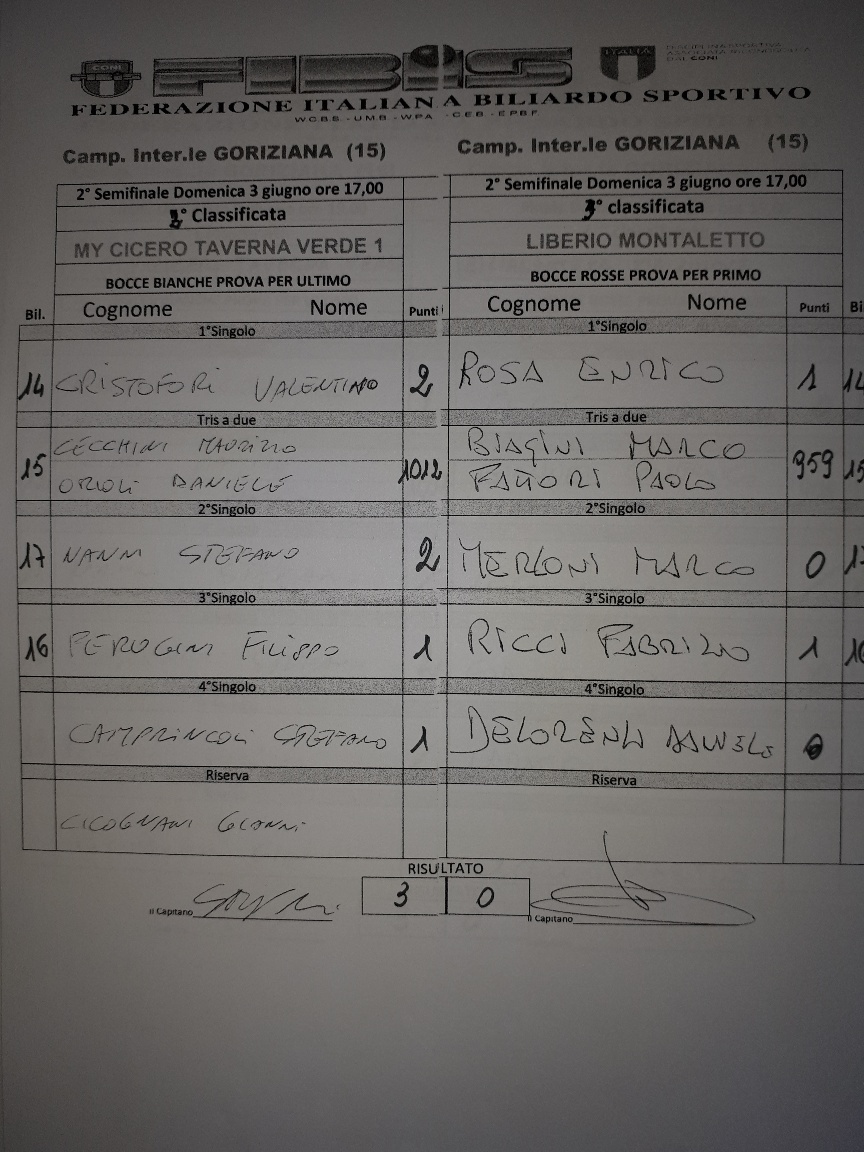 CONI FIBiS ITALIA DISCIPLINA SPORTIVA ASSOCIATA RICONOSCIUTA DAL CONI
FEDERAZIONE ITALIANA BILIARDO SPORTIVO
WCBS - UMB - WPA - CEB - EPBF
Camp. Inter.le GORIZIANA (15) Camp. Inter.le GORIZIANA (15)
2° Semifinale Domenica 3 giugno ore 17,00 2° Semifinale Domenica 3 giugno ore 17,00
2° Classificata 3° classificata
MY CICERO TAVERNA VERDE 1 LIBERIO MONTALETTO
BOCCE BIANCHE PROVA PER ULTIMO BOCCE ROSSE PROVA PER PRIMO
Bil. Cognome Nome Punti Cognome Nome Punti Bi
1°Singolo 1°Singolo
14 CRISTOFORI VALENTINO 2 ROSA ENRICO 1 14
Tris a due Tris a due
CECCHINI MAURIZIO BIAGINI MARCO
15 ORIOLI DANIELE 1012 FATTORI PAOLO 959 15
2°Singolo 2°Singolo
17 NANNI STEFANO 2 MERLONI MARCO 0 17
3°Singolo 3°Singolo
16 PERUGINI FILIPPO 1 RICCI FABRIZIO 1 16
4°Singolo 4°Singolo
CAMPRINCOLI STEFANO 1 DELORENZI 0
Riserva Riserva
CICOGNANI GIANNI
RISULTATO
3 0
Il Capitano Il Capitano